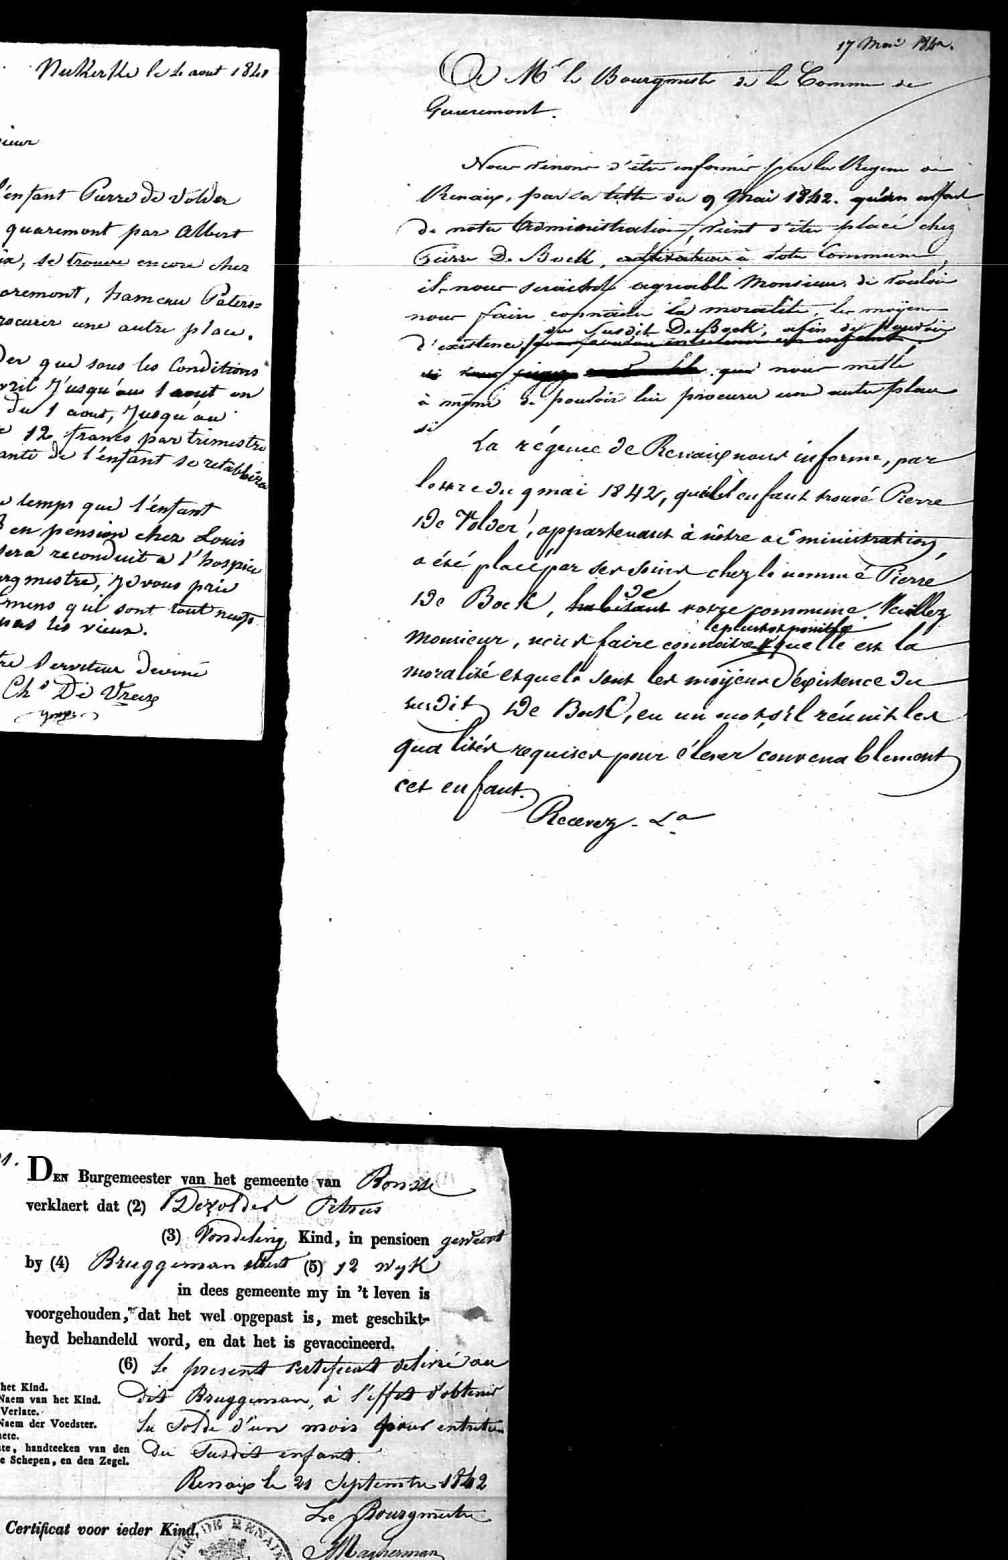 Nukerke le 4 aout 1841
l'enfant Pierre de Volder
quaremont par Albert
se trouve encore chez
aremont, hameau Paters=
rocurer une autre place.
der que sous les Conditions
vril jusqu'au 1 aout on
du 1 aout, jusqu'au
12 francs par trimestre
ante de l'enfant se retablira
temps que l'enfant
en pension chez Louis
sera reconduit a l'hospice
urgmestre, je vous prie
mens qu'il sont tout neufs
pas les vieux.
tre Serviteur devoué
Chs De Vreese
17 Mai 1842.
A Mr le Bourgmestre de la Commune de
Quaremont.
Nous venons d'être informés par la Régence de
Renaix, par sa lettre du 9 Mai 1842. qu'un enfant
de notre administration vient d'être placé chez
Pierre De Bock, cultivateur à votre Commune,
il nous serait agreable Monsieur, de vouloir
nous faire connaitre la moralité, les moyens
du susdit De Bock, afin de pouvoir
d'existence
qui nous mette
à même de pouvoir lui procurer une autre place
si
La régence de Renaix nous informe, par
lettre du 9 mai 1842, que l'enfant trouvé Pierre
De Volder, appartenant à nôtre administration,
a été placé par ses soins chez le nommé Pierre
de
De Bock, habitant votre commune. Veuillez
le plustot possible
Monsieur, nous faire connoitre quelle est la
moralité et quels sont les moyens d'existence du
susdit De Bock, en un mot s'il réunit les
qualités requises pour élever convenablement
cet enfant.
Recevez. La
DEN Burgemeester van het gemeente van Ronsse
verklaert dat (2) Dezolder Petrus
(3) Vondeling Kind, in pensioen gesteld
by (4) Bruggeman (5) 12 wyk
in dees gemeente my in 't leven is
voorgehouden, dat het wel opgepast is, met geschikt-
heyd behandeld word, en dat het is gevaccineerd.
(6) Le present certificat delivré au
dit Bruggeman, à l'effet d'obtenir
la solde d'un mois pour entretien
du susdit enfant.
Renaix le 21 Septembre 1842
Le Bourgmestre
Magherman
het Kind.
Naem van het Kind.
Verlate.
Naem der Voedster.
handteeken van den
Schepen, en den Zegel.
Certificat voor ieder Kind.
DE RENAIX